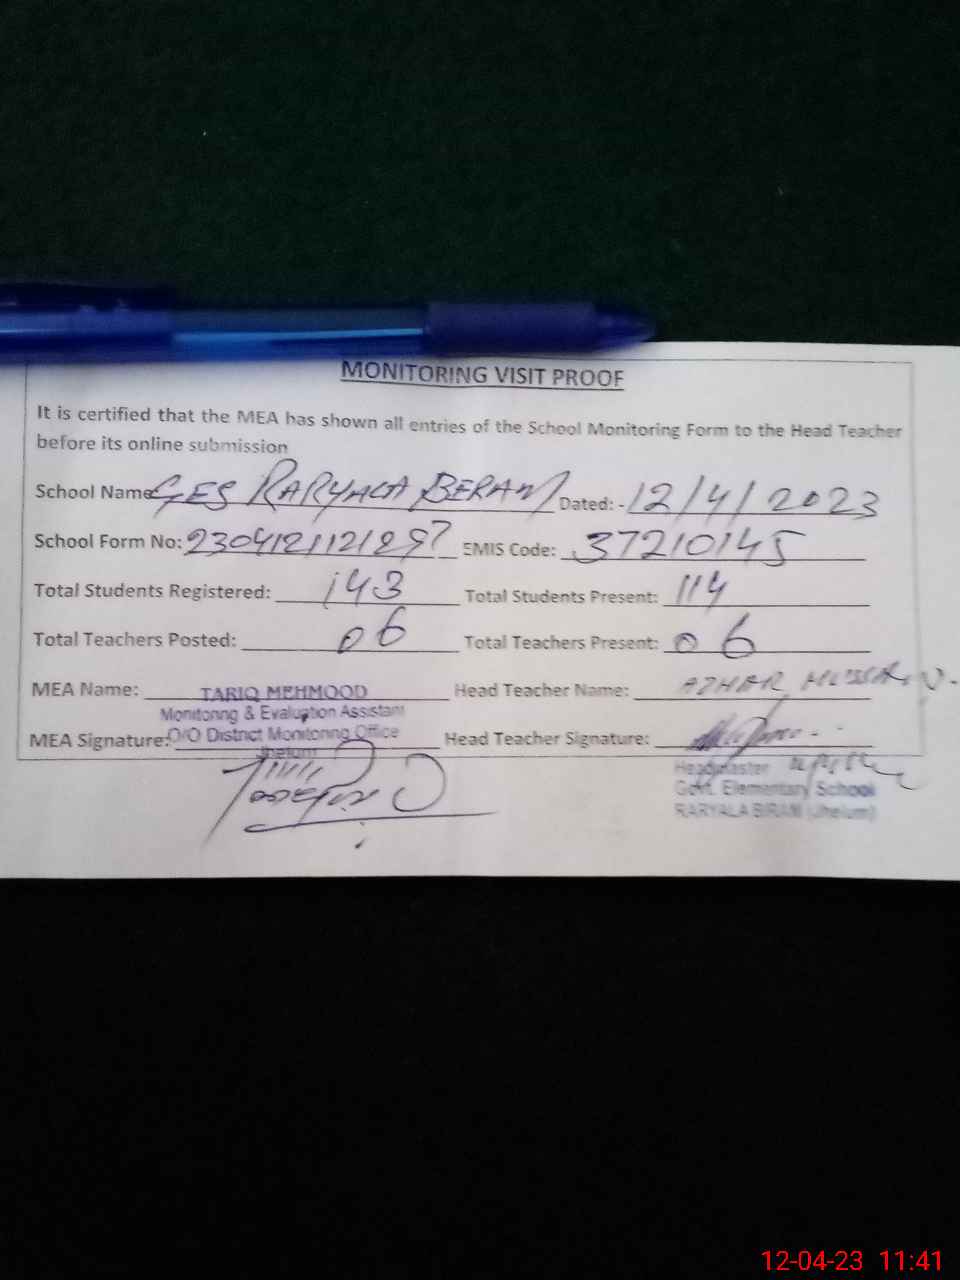 MONITORING VISIT PROOF
It is certified that the MEA has shown all entries of the School Monitoring Form to the Head Teacher
before its online submission
School Name GES RARYALA BERAM Dated: - 12/4/2023
School Form No: 230412112129? EMIS Code: 37210145
Total Students Registered: 143 Total Students Present: 114
Total Teachers Posted: 06 Total Teachers Present: 06
MEA Name: TARIQ MEHMOOD Head Teacher Name: AZHAR HUSSAIN
Monitoring & Evaluation Assistant
MEA Signature: O/O District Monitoring Office Head Teacher Signature:
Jhelum
Headmaster
Govt. Elementary School
RARYALA BIRAM (Jhelum)
12-04-23 11:41